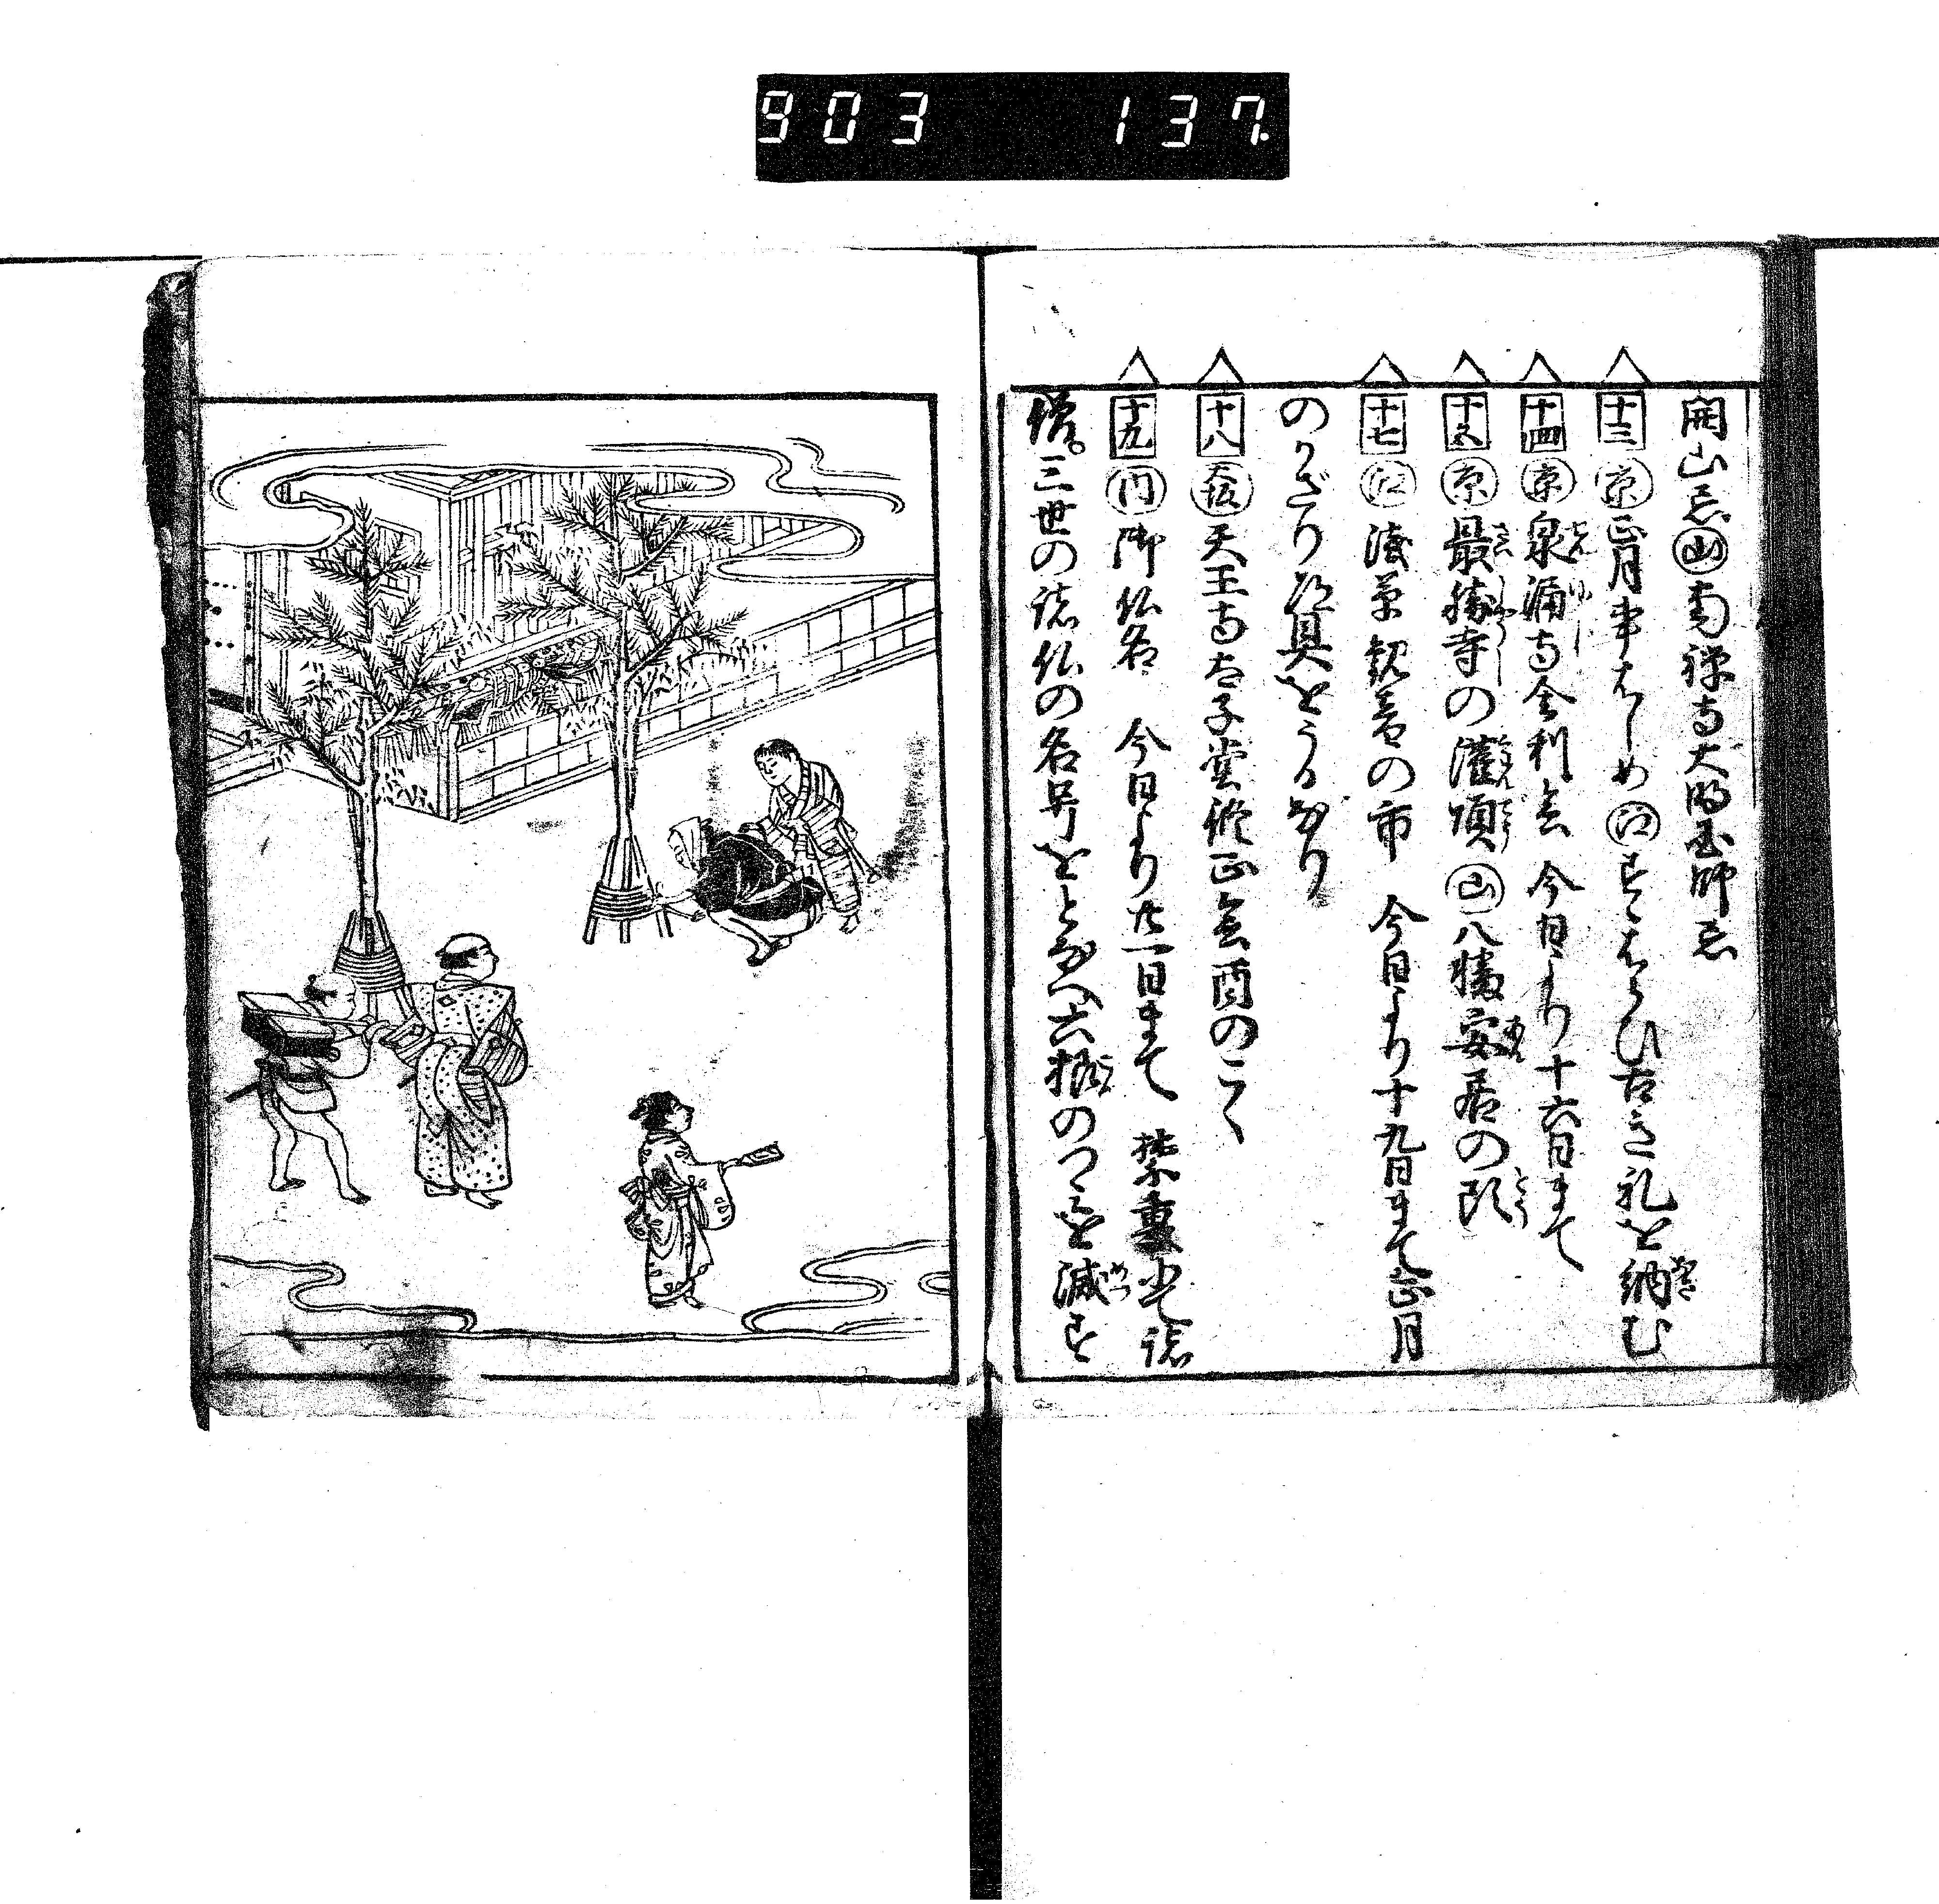 903 137.
開山忌㊥山南禅寺大明国師忌
十三 京 正月事はしめ 江 すはらひ古き札を納む
十四 京 泉涌寺舎利会 今日より十六日まて
十五 京 最勝寺の灌頂 山 八幡安居の頭
十七 江 浅草観音の市 今日より十九日まて正月
のかざり道具をうるなり
十八 大坂 天王寺太子堂修正会酉のこく
十九 門 御仏名 今日より廿一日まて 禁裏にて諸
僧。三世の諸仏の名号をとなへ六根のつみを滅す